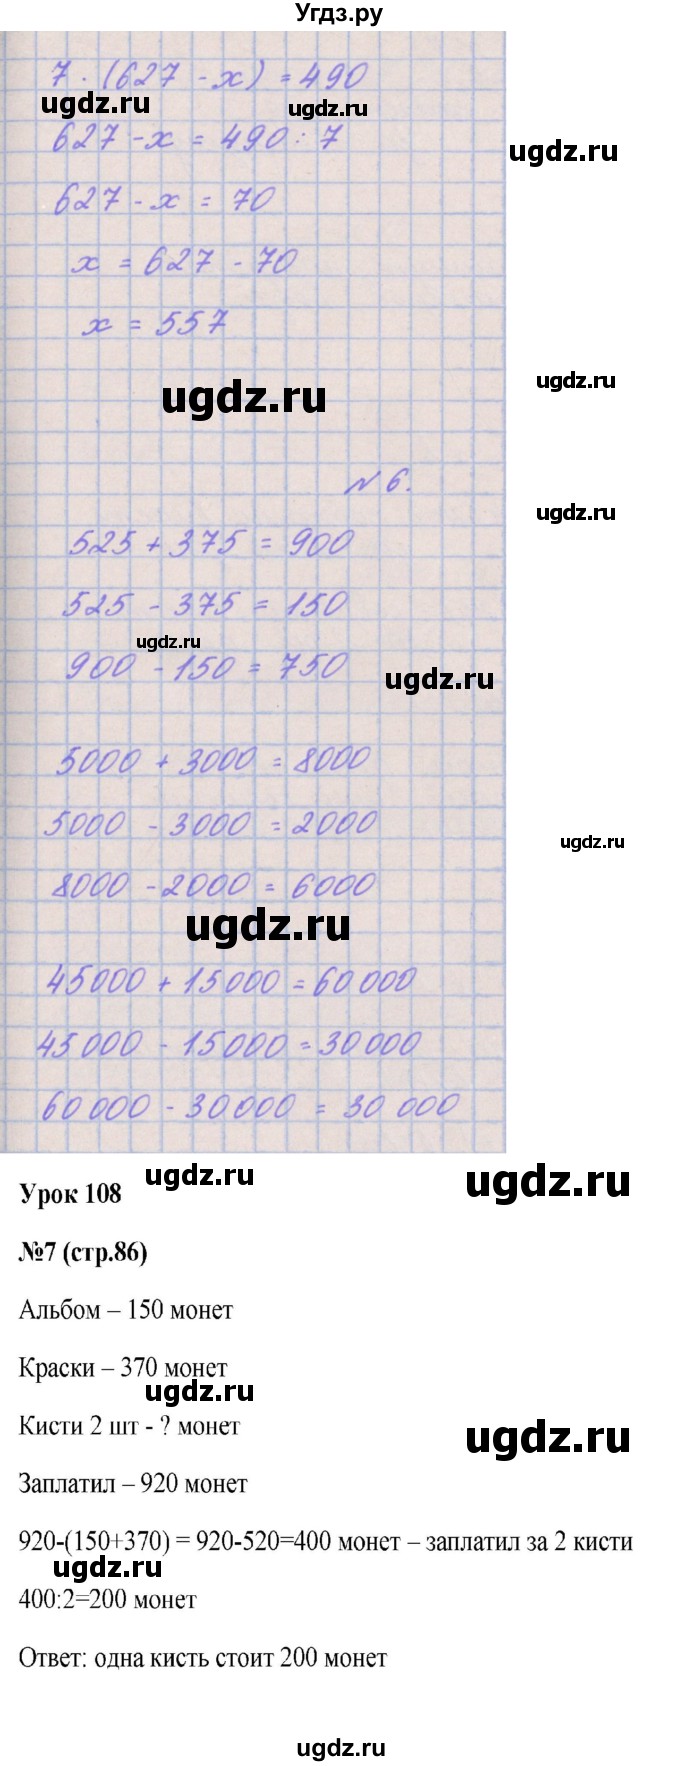 Угдз.ру
7 · (627 - x) = 490
ugdz.ru
ugdz.ru
627 - x = 490 : 7
ugdz.ru
627 - x = 70
x = 627 - 70
x = 557
ugdz.ru
ugdz.ru
№ 6.
ugdz.ru
525 + 375 = 900
525 - 375 = 150
ugdz.ru
900 - 150 = 750
ugdz.ru
5000 + 3000 = 8000
5000 - 3000 = 2000
ugdz.ru
8000 - 2000 = 6000
ugdz.ru
45 000 + 15 000 = 60 000
45 000 - 15 000 = 30 000
60 000 - 30 000 = 30 000
ugdz.ru
ugdz.ru
Урок 108
№7 (стр.86)
Альбом – 150 монет
Краски – 370 монет
ugdz.ru
Кисти 2 шт - ? монет
ugdz.ru
Заплатил – 920 монет
920-(150+370) = 920-520=400 монет – заплатил за 2 кисти
ugdz.ru
400:2=200 монет
Ответ: одна кисть стоит 200 монет
ugdz.ru